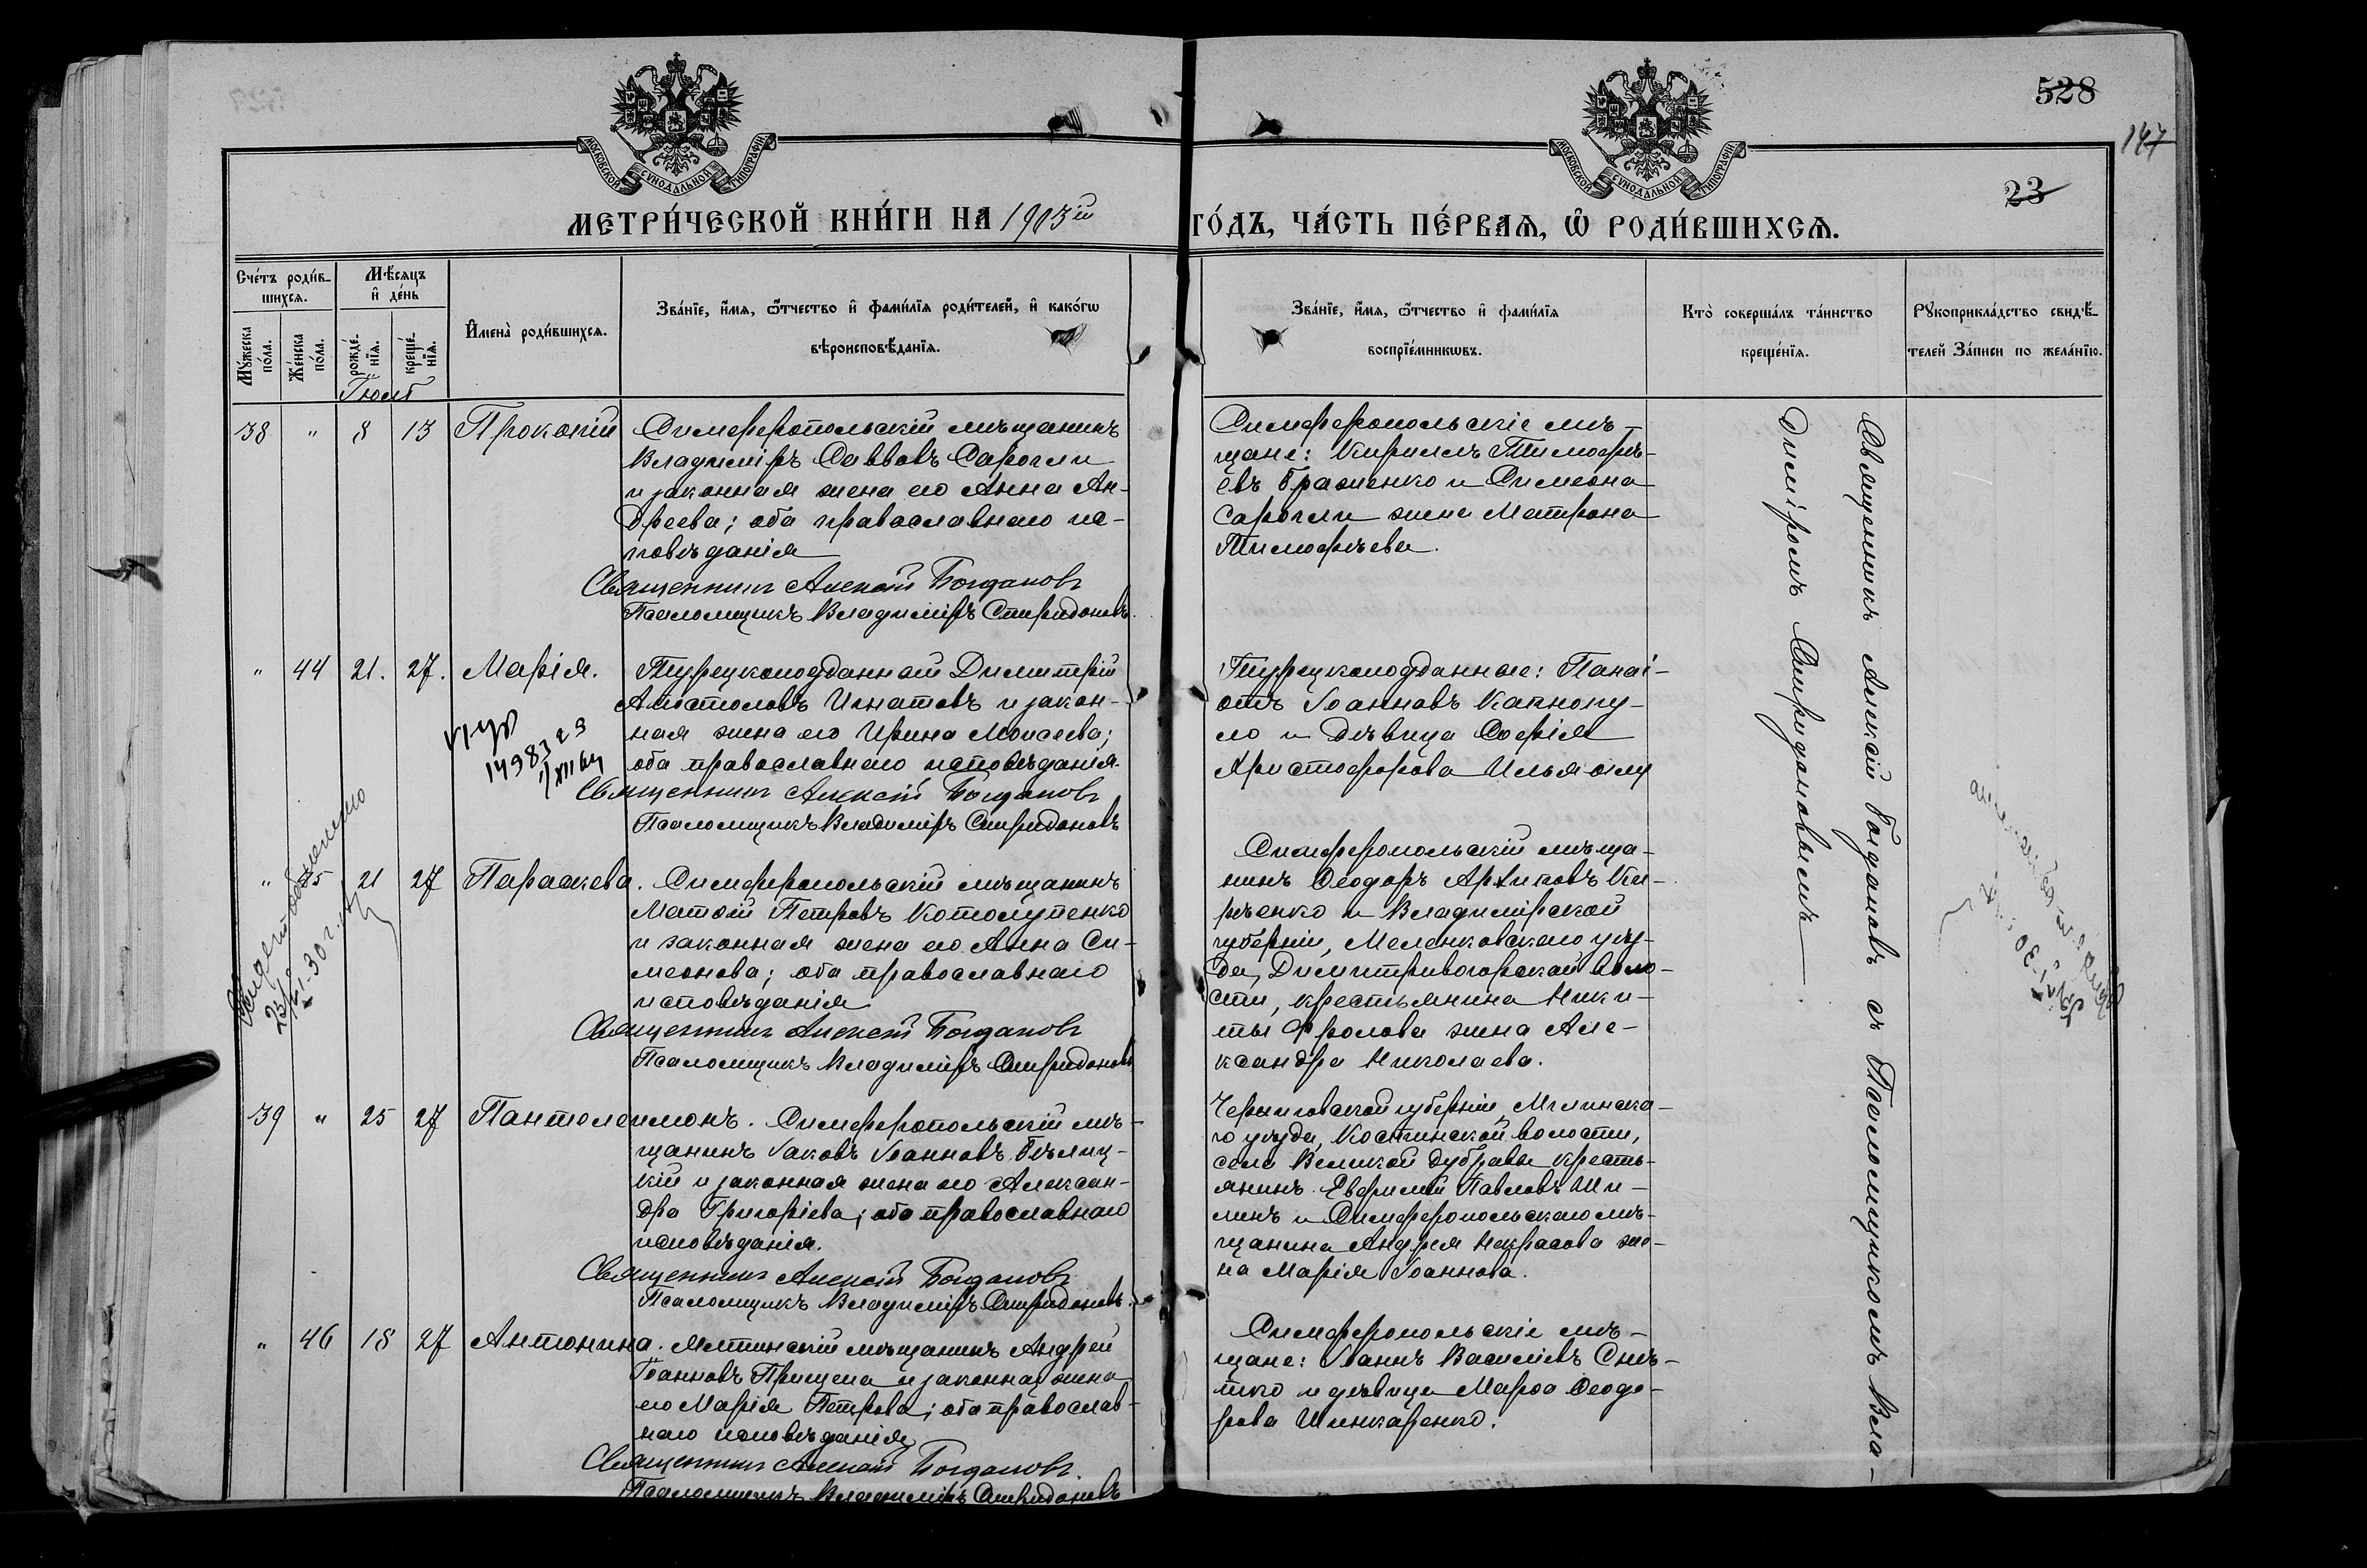 528
147
23
МОСКОВСКОЙ СѴНОДАЛЬНОЙ ТИПОГРАФІИ
МОСКОВСКОЙ СѴНОДАЛЬНОЙ ТИПОГРАФІИ
МЕТРИ́ЧЕСКОЙ КНИ́ГИ НА 1903й
ГО́ДЪ, ЧА́СТЬ ПЕ́РВАѦ, Ѡ҆ РОДИ́ВШИХСѦ.
Сче́тъ роди́в-
шихсѧ.
Мꙋ́жеска по́ла.
Же́нска по́ла.
Мѣ́сѧцъ
и҆ де́нь
рожде́нїѧ.
креще́нїѧ.
И҆мена̀ роди́вшихсѧ.
Зва́нїе, и҆́мѧ, ѻ҆́тчество и҆ фами́лїѧ роди́телей, и҆ како́гѡ
вѣроисповѣ́данїѧ.
Зва́нїе, и҆́мѧ, ѻ҆́тчество и҆ фами́лїѧ
воспрїе́мникѡвъ.
Кто̀ соверша́лъ та́инство
креще́нїѧ.
Рꙋкоприкла́дство свидѣ́-
телей за́писи по жела́нїю.
Іюль
38 " 8 13 Прокопій
Симферопольскій мѣщанинъ
Владиміръ Саввовъ Сарогли
и законная жена его Анна Ан-
дреева; оба православнаго ис-
повѣданія
Священникъ Алексій Богдановъ
Псаломщикъ Владиміръ Спиридоновъ.
Симферопольскіе мѣ-
щане: Кириллъ Тимофѣ-
евъ Браженко и Симеона
Сарогли жена Матрона
Тимофѣева.
" 44 21. 27. Марія.
Турецкоподданный Димитрій
Апостоловъ Игнатовъ и закон-
ная жена его Ирина Моисеева;
оба православнаго исповѣданія.
Священникъ Алексій Богдановъ
Псаломщикъ Владиміръ Спиридоновъ
Турецкоподданные: Панаі-
отъ Іоанновъ Капнопу-
ло и дѣвица Софія
Христофорова Ильяоглу
" 45 21 27 Параскева.
Симферопольскій мѣщанинъ
Матѳій Петровъ Котолупенко
и законная жена его Анна Си-
меонова; оба православнаго
исповѣданія
Священникъ Алексій Богдановъ
Псаломщикъ Владиміръ Спиридоновъ
Симферопольскій мѣща-
нинъ Ѳеодоръ Архиповъ Ки-
рѣенко и Владимірской
губерніи, Меленковскаго уѣз-
да, Димитривогорской воло-
сти, крестьянина Ники-
ты Фролова жена Але-
ксандра Николаева.
39 " 25 27 Пантолеимонъ.
Симферопольскій мѣ-
щанинъ Іаковъ Іоанновъ Бѣлиц-
кій и законная жена его Алексан-
дра Григоріева; оба православнаго
исповѣданія.
Священникъ Алексій Богдановъ
Псаломщикъ Владиміръ Спиридоновъ.
Черниговской губерніи, Мглинска-
го уѣзда, Костинской волости,
села Великой Дубравы кресть-
янинъ Евфимій Павловъ Ши-
линъ и Симферопольскаго мѣ-
щанина Андрея Некрасова же-
на Марія Іоаннова.
" 46 18 27 Антонина.
Ялтинскій мѣщанинъ Андрей
Іоанновъ Прищепа и законная жена
его Марія Петрова; оба православ-
наго исповѣданія
Священникъ Алексій Богдановъ.
Псаломщикъ Владиміръ Спиридоновъ
Симферопольскіе мѣ-
щане: Іоаннъ Василіевъ Снѣ-
жко и дѣвица Марѳа Ѳеодо-
рова Шинкаренко.
Священникъ Алексій Богдановъ съ Псаломщикомъ Вла-
диміромъ Спиридоновымъ